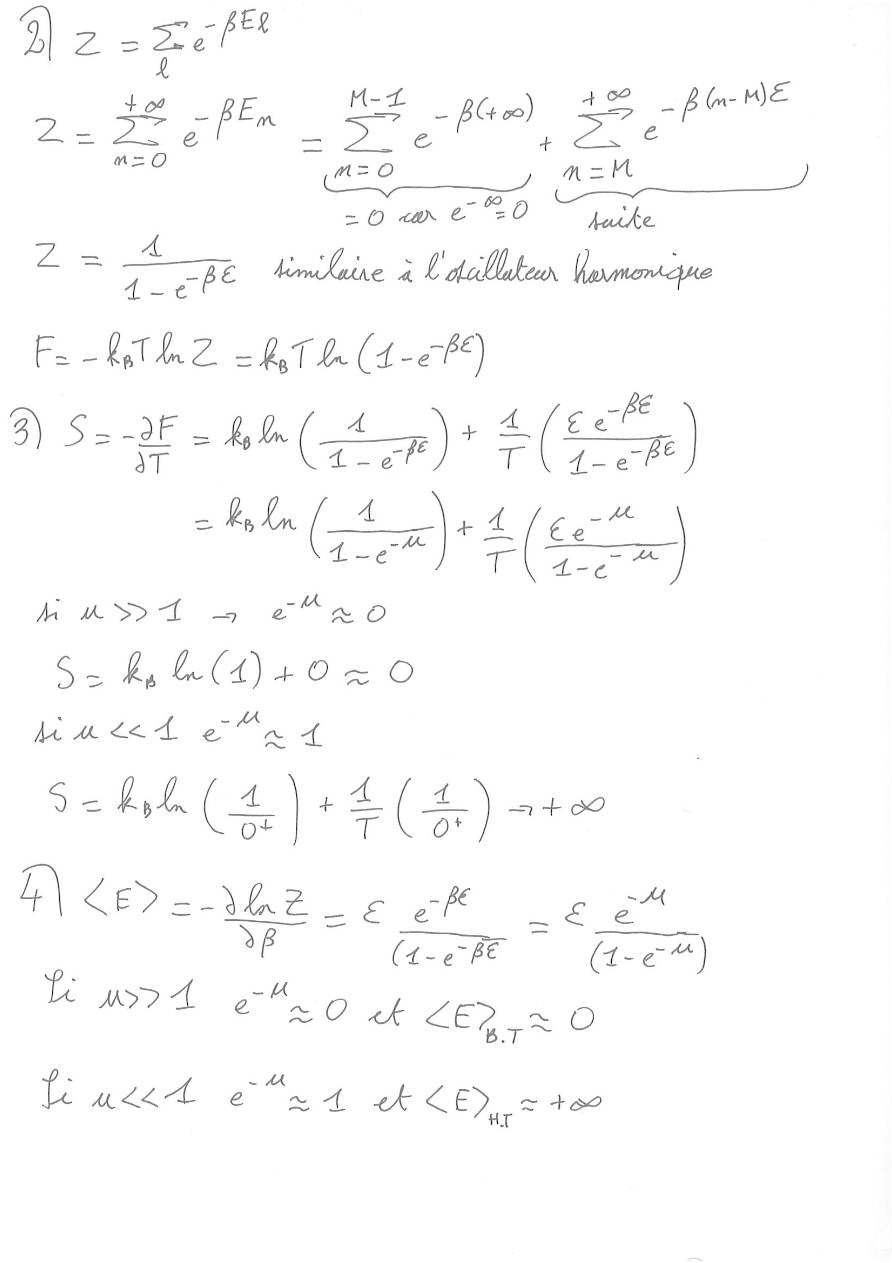 2) Z = Σ_l e^{-βEl}
Z = Σ_{n=0}^{+∞} e^{-βE_n} = Σ_{n=0}^{M-1} e^{-β(+∞)} + Σ_{n=M}^{+∞} e^{-β(n-M)ε}
= 0 car e^{-∞}=0 suite
Z = 1/(1-e^{-βε}) similaire à l'oscillateur harmonique
F = -k_B T ln Z = k_B T ln (1-e^{-βε})
3) S = -∂F/∂T = k_B ln (1/(1-e^{-βε})) + 1/T (ε e^{-βε}/(1-e^{-βε}))
= k_B ln (1/(1-e^{-u})) + 1/T (ε e^{-u}/(1-e^{-u}))
si u >> 1 → e^{-u} ≈ 0
S = k_B ln(1) + 0 ≈ 0
si u << 1 e^{-u} ≈ 1
S = k_B ln (1/0⁺) + 1/T (1/0⁺) → +∞
4) <E> = -∂ln Z/∂β = ε e^{-βε}/(1-e^{-βε} = ε e^{-u}/(1-e^{-u})
Si u>>1 e^{-u} ≈ 0 et <E>_{B.T} ≈ 0
Si u<<1 e^{-u} ≈ 1 et <E>_{H.T} ≈ +∞